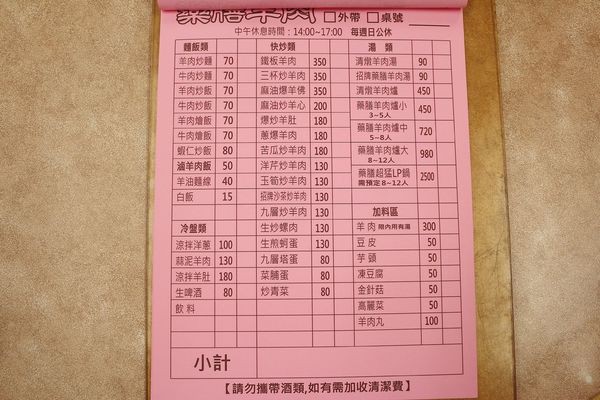 藥膳羊肉 □外帶 □桌號
中午休息時間：14:00~17:00 每週日公休
麵飯類
羊肉炒麵 70
牛肉炒麵 70
羊肉炒飯 70
牛肉炒飯 70
羊肉燴飯 70
牛肉燴飯 70
蝦仁炒飯 80
滷羊肉飯 50
羊油麵線 40
白飯 15
冷盤類
涼拌洋蔥 100
蒜泥羊肉 130
涼拌羊肚 180
生啤酒 80
飲料
快炒類
鐵板羊肉 350
三杯炒羊肉 350
麻油爆羊佛 350
麻油炒羊心 200
爆炒羊肚 180
蔥爆羊肉 180
苦瓜炒羊肉 180
洋芹炒羊肉 130
玉筍炒羊肉 130
招牌沙茶炒羊肉 130
九層炒羊肉 130
生炒螺肉 130
生煎蚵蛋 130
九層塔蛋 80
菜脯蛋 80
炒青菜 80
湯類
清燉羊肉湯 90
招牌藥膳羊肉湯 90
清燉羊肉爐 450
藥膳羊肉爐小 450
3~5人
藥膳羊肉爐中 720
5~8人
藥膳羊肉爐大 980
8~12人
藥膳超猛LP鍋 2500
需預定8~12人
加料區
羊肉 限內用有湯 300
豆皮 50
芋頭 50
凍豆腐 50
金針菇 50
高麗菜 50
羊肉丸 100
小計
【請勿攜帶酒類,如有需加收清潔費】